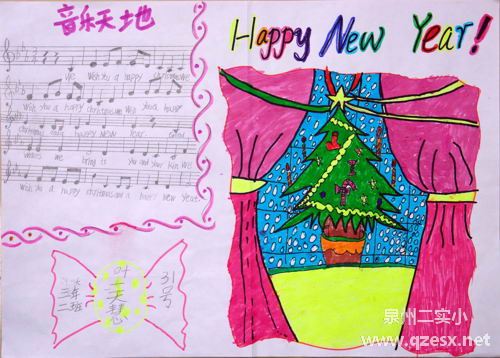 音乐天地
Happy New Year!
We Wish you a happy christmas We
Wish you a happy christmas We Wish you a happy
christmas and a happy NEW Year.
We bring to you and your kin We
Wish you a happy christmas and a happy New Year.
三年
二班
31号
泉州二实小
www.qzesx.net